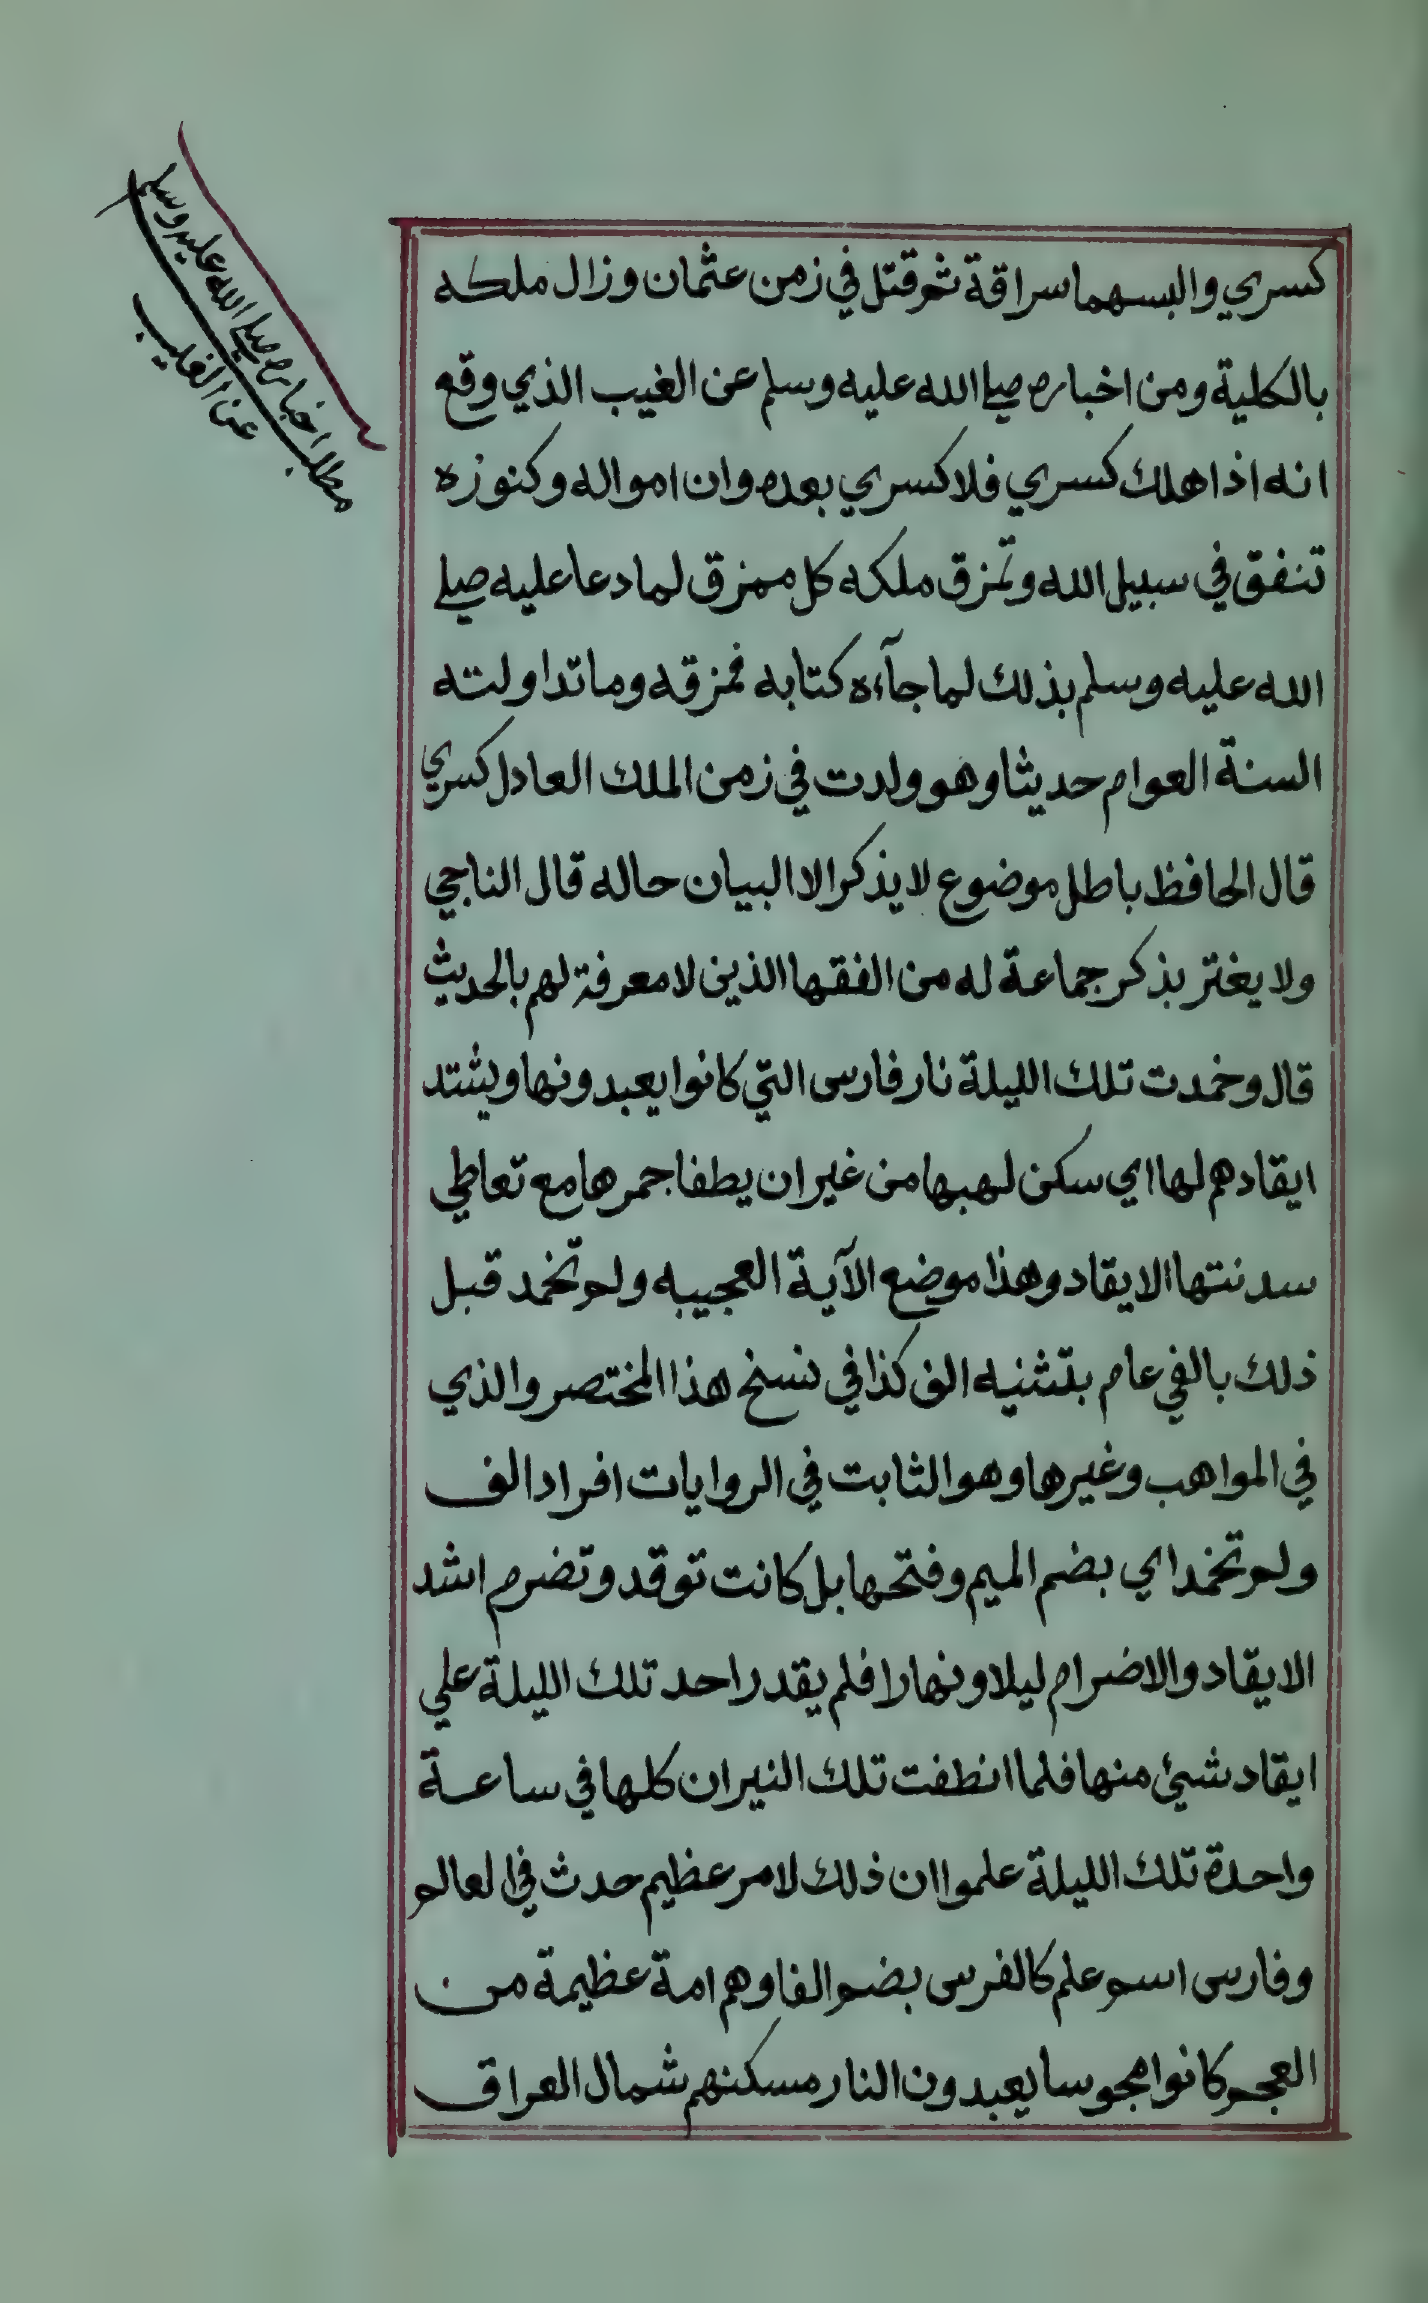 مطلب اخباره صلي الله عليه وسلم
عن الغيب
كسري والبسهما سراقة ثم قتل في زمن عثمان وزال ملكه
بالكلية ومن اخباره صلي الله عليه وسلم عن الغيب الذي وقع
انه اذا هلك كسري فلا كسري بعده وان امواله وكنوزه
تنفق في سبيل الله وتمزق ملكه كل ممزق لما دعا عليه صلي
الله عليه وسلم بذلك لما جآءه كتابه فمزقه وما تداولته
السنة العوام حديثا وهو ولدت في زمن الملك العادل كسري
قال الحافظ باطل موضوع لا يذكر الا البيان حاله قال الناجي
ولا يغتر بذكر جماعة له من الفقها الذين لا معرفة لهم بالحديث
قال وخمدت تلك الليلة نار فارس التي كانوا يعبدونها ويشتد
ايقادهم لها اي سكن لهبها من غير ان يطفا جمرها مع تعاطي
سدنتها الايقاد وهذا موضع الآية العجيبه ولم تخمد قبل
ذلك بالفي عام بتثنيه الف كذا في نسخ هذا المختصر والذي
في المواهب وغيرها وهو الثابت في الروايات افراد الف
ولم تخمد اي بضم الميم وفتحها بل كانت توقد وتضرم اشد
الايقاد والاضرام ليلا ونهارا فلم يقدر احد تلك الليلة علي
ايقاد شيئ منها فلما انطفت تلك النيران كلها في ساعة
واحدة تلك الليلة علموا ان ذلك لامر عظيم حدث في العالم
وفارس اسم علم كالفرس بضم الفا وهم امة عظيمة من
العجم كانوا مجوسا يعبدون النار مسكنهم شمال العراق